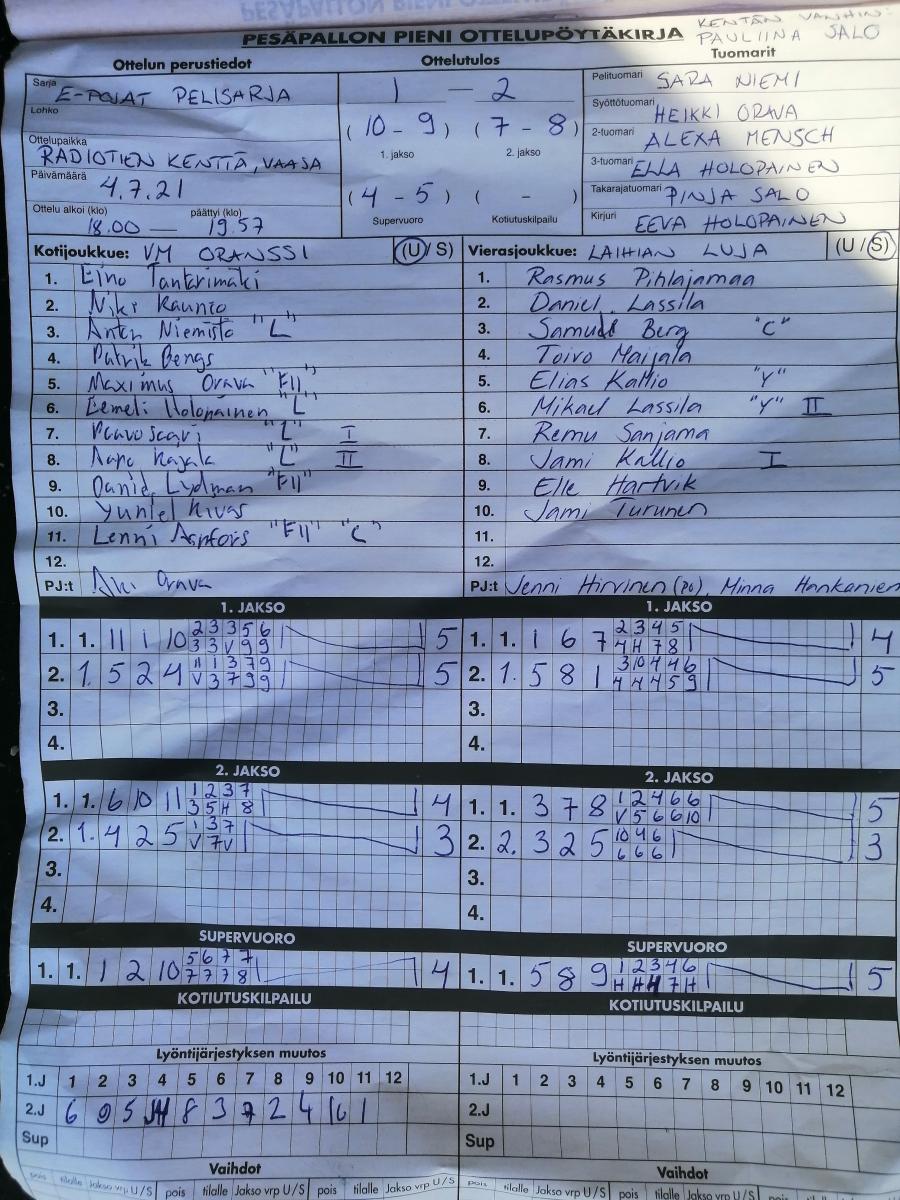 KENTÄN VANHIN:
PESÄPALLON PIENI OTTELUPÖYTÄKIRJA PAULIINA SALO
Ottelun perustiedot Ottelutulos Tuomarit
Sarja E-POJAT PELISARJA 1 — 2 Pelituomari SARA NIEMI
Lohko Syöttötuomari HEIKKI ORAVA
(10 - 9) (7 - 8) 2-tuomari ALEXA MENSCH
Ottelupaikka RADIOTIEN KENTTÄ, VAASA 1. jakso 2. jakso 3-tuomari ELLA HOLOPAINEN
Päivämäärä 4.7.21 (4 - 5) ( - ) Takarajatuomari PINJA SALO
Ottelu alkoi (klo) päättyi (klo) Supervuoro Kotiutuskilpailu Kirjuri EEVA HOLOPAINEN
18.00 — 19.57
Kotijoukkue: VM ORANSSI (U / S) Vierasjoukkue: LAIHIAN LUJA (U / S)
1. Eino Tantarimäki 1. Rasmus Pihlajamaa
2. Niki Kaunio 2. Daniel Lassila
3. Niemistö "L" 3. Samuel Berg "C"
4. Patrik Bengs 4. Toivo Maijala
5. Maximus Orava "E11" 5. Elias Kallio "Y"
6. Eemeli Holopainen "L" 6. Mikael Lassila "Y" II
7. "L" I 7. Remu Sanjama
8. Aapo Kajala "L" II 8. Jami Kallio I
9. Lydman "E11" 9. Elle Hartvik
10. Kivas 10. Jami Turunen
11. Lenni Aspfors "E11" "C" 11.
12. 12.
PJ:t Aki Orava PJ:t Jenni Hirvinen (PJ), Minna Hankanien
1. JAKSO 1. JAKSO
1. 1. 11 1 10 2 3 3 5 6 5 1. 1. 1 6 7 2 3 4 5 4
3 3 V 9 9 4 H 7 8
2. 1. 5 2 4 11 1 3 7 9 5 2. 1. 5 8 1 3 10 4 4 6 5
V 3 7 9 9 4 4 4 5 9
3. 3.
4. 4.
2. JAKSO 2. JAKSO
1. 1. 6 10 11 1 2 3 7 4 1. 1. 3 7 8 1 2 4 6 6 5
3 5 H 8 V 5 6 6 10
2. 1. 4 2 5 1 3 7 3 2. 2. 3 2 5 10 4 6 3
V 7 V 6 6 6
3. 3.
4. 4.
SUPERVUORO SUPERVUORO
1. 1. 1 2 10 5 6 7 7 4 1. 1. 5 8 9 1 2 3 4 6 5
7 7 7 8 H H H 7 H
KOTIUTUSKILPAILU KOTIUTUSKILPAILU
Lyöntijärjestyksen muutos Lyöntijärjestyksen muutos
1.J 1 2 3 4 5 6 7 8 9 10 11 12 1.J 1 2 3 4 5 6 7 8 9 10 11 12
2.J 6 9 5 8 3 7 2 4 10 1 2.J
Sup Sup
Vaihdot Vaihdot
pois tilalle Jakso vrp U/S pois tilalle Jakso vrp U/S pois tilalle Jakso vrp U/S pois tilalle Jakso vrp U/S pois tilalle Jakso vrp U/S pois tilalle Jakso vrp U/S